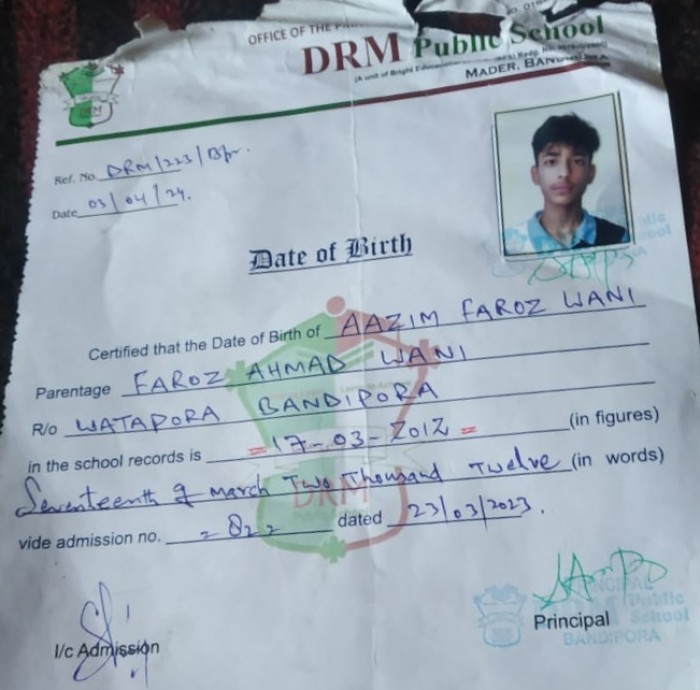 OFFICE OF THE
DRM Public School
MADER,
DRM
Ref. No. DRM/223/Bpr.
Date 03/04/24.
Date of Birth
Certified that the Date of Birth of AAZIM FAROZ WANI
Parentage FAROZ AHMAD WANI
R/o WATAPORA BANDIPORA
in the school records is =17-03-2012= (in figures)
Seventeenth of March Two Thousand Twelve (in words)
DRM
vide admission no. =822 dated 23/03/2023.
I/c Admission
Principal
PRINCIPAL
Public
School
BANDIPORA